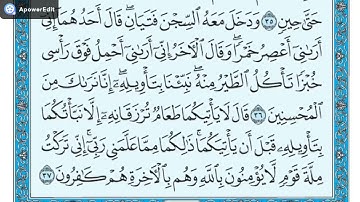 ApowerEdit
حَتَّىٰ حِينٍ ٣٥ وَدَخَلَ مَعَهُ ٱلسِّجْنَ فَتَيَانِ ۖ قَالَ أَحَدُهُمَآ إِنِّىٓ
أَرَىٰنِىٓ أَعْصِرُ خَمْرًا ۖ وَقَالَ ٱلْـَٔاخَرُ إِنِّىٓ أَرَىٰنِىٓ أَحْمِلُ فَوْقَ رَأْسِى
خُبْزًا تَأْكُلُ ٱلطَّيْرُ مِنْهُ ۖ نَبِّئْنَا بِتَأْوِيلِهِۦٓ ۖ إِنَّا نَرَىٰكَ مِنَ
ٱلْمُحْسِنِينَ ٣٦ قَالَ لَا يَأْتِيكُمَا طَعَامٌ تُرْزَقَانِهِۦٓ إِلَّا نَبَّأْتُكُمَا
بِتَأْوِيلِهِۦ قَبْلَ أَن يَأْتِيَكُمَا ۚ ذَٰلِكُمَا مِمَّا عَلَّمَنِى رَبِّىٓ ۚ إِنِّى تَرَكْتُ
مِلَّةَ قَوْمٍ لَّا يُؤْمِنُونَ بِٱللَّهِ وَهُم بِٱلْـَٔاخِرَةِ هُمْ كَـٰفِرُونَ ٣٧